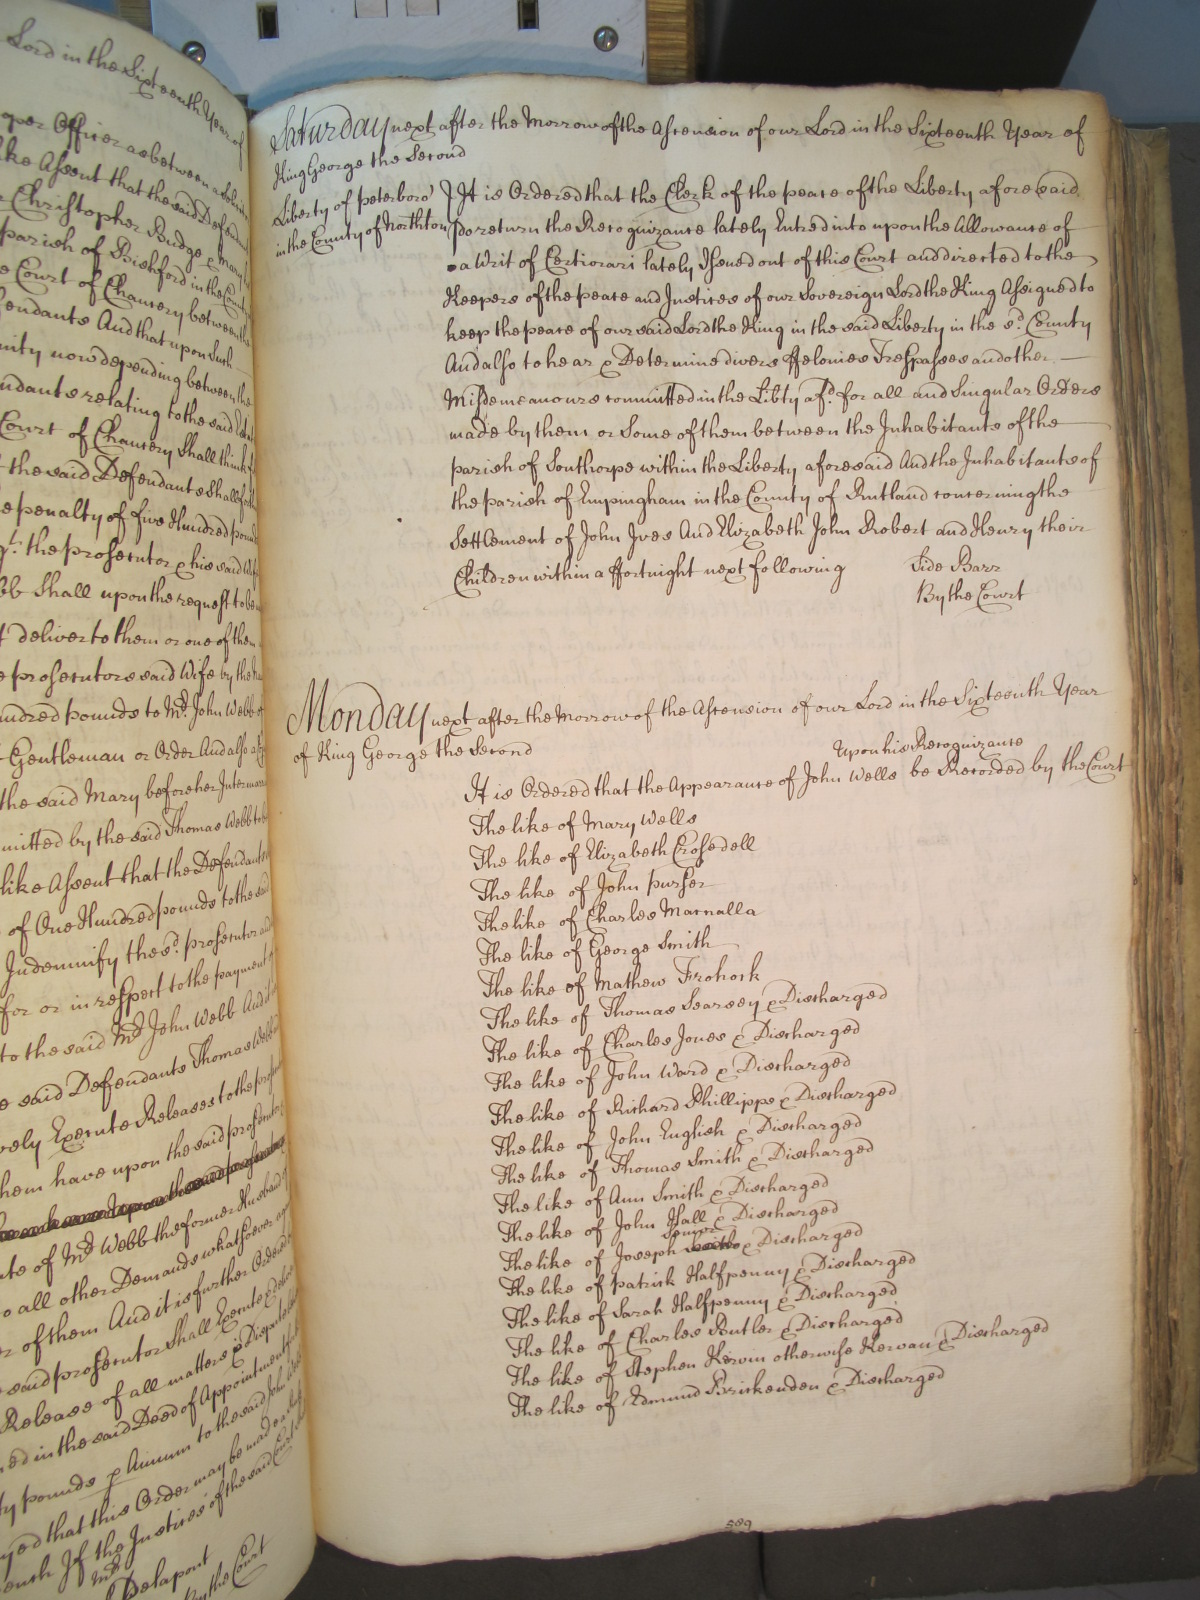 Lord in the Sixteenth Year of
Officer as between
like Assent that the said Defend
Christopher Budge & Mary
parish of Bishford in the County
Court of Chancery between the
Defendants And that upon such
now depending between the
relating to the said
Court of Chancery Shall think
the said Defendants Shall
penalty of five Hundred pounds
the prosecutor & his said Wife
Shall upon the request to be
deliver to them or one of them
prosecutors said Wife by the
hundred pounds to Mrs. John Webb
Gentleman or Order And also
the said Mary before her Interma
mitted by the said Thomas Webb to be
like Assent that the Defendants
of One Hundred pounds to the said
Indemnify the sd. prosecutor and
for or in respect to the payment
to the said Mrs John Webb And
said Defendants Thomas Webb
Execute Releases to the
them have upon the said prosecutor
of Mrs Webb the former Husband
all other Demands whatsoever
of them And it is further Ordered
said prosecutor Shall Execute &
Release of all matters
in the said Deed of Appointment
pounds p Annum to the said John
that this Order may be made
the Justices of the said Court
Delapont
By the Court
Saturday next after the Morrow of the Ascension of our Lord in the Sixteenth Year of
King George the Second
Liberty of peterboro' } It is Ordered that the Clerk of the peace of the Liberty aforesaid
in the County of Northton } do return the Recognizance lately Entred into upon the Allowance of
a Writ of Certiorari lately Issued out of this Court and directed to the
Keepers of the peace and Justices of our Sovereign Lord the King Assigned to
keep the peace of our said Lord the King in the said Liberty in the sd. County
And also to hear & Determine divers ffelonies Trespasses and other
Misdemeanours committed in the Libty afd. for all and Singular Orders
made by them or Some of them between the Inhabitants of the
parish of Southorpe within the Liberty aforesaid And the Inhabitants of
the parish of Empingham in the County of Rutland concerning the
Settlement of John Ives And Elizabeth John Robert and Henry their
Children within a ffortnight next following Side Barr
By the Court
Monday next after the Morrow of the Ascension of our Lord in the Sixteenth Year
of King George the Second
upon his Recognizance
It is Ordered that the Appearance of John Wells be Recorded by the Court
The like of Mary Wells
The like of Elizabeth Crosedell
The like of John purser
The like of Charles Macnalla
The like of George Smith
The like of Mathew Frohock
The like of Thomas Searsey & Discharged
The like of Charles Jones & Discharged
The like of John Ward & Discharged
The like of Richard Phillipps & Discharged
The like of John English & Discharged
The like of Thomas Smith & Discharged
The like of Ann Smith & Discharged
The like of John Hall & Discharged
The like of Joseph & Discharged
The like of patrick Halfpenny & Discharged
The like of Sarah Halfpenny & Discharged
The like of Charles Butler & Discharged
The like of Stephen Kirwin otherwise Kerwan & Discharged
The like of Edmund Brickenden & Discharged
589